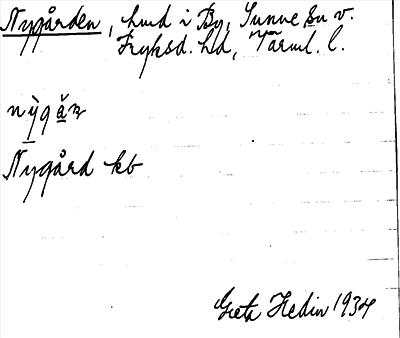 Nygården, hmd i By, Sunne sn v.
Fryksd. hd, Värml. l.
Nygård kb
Greta Hedin 1934